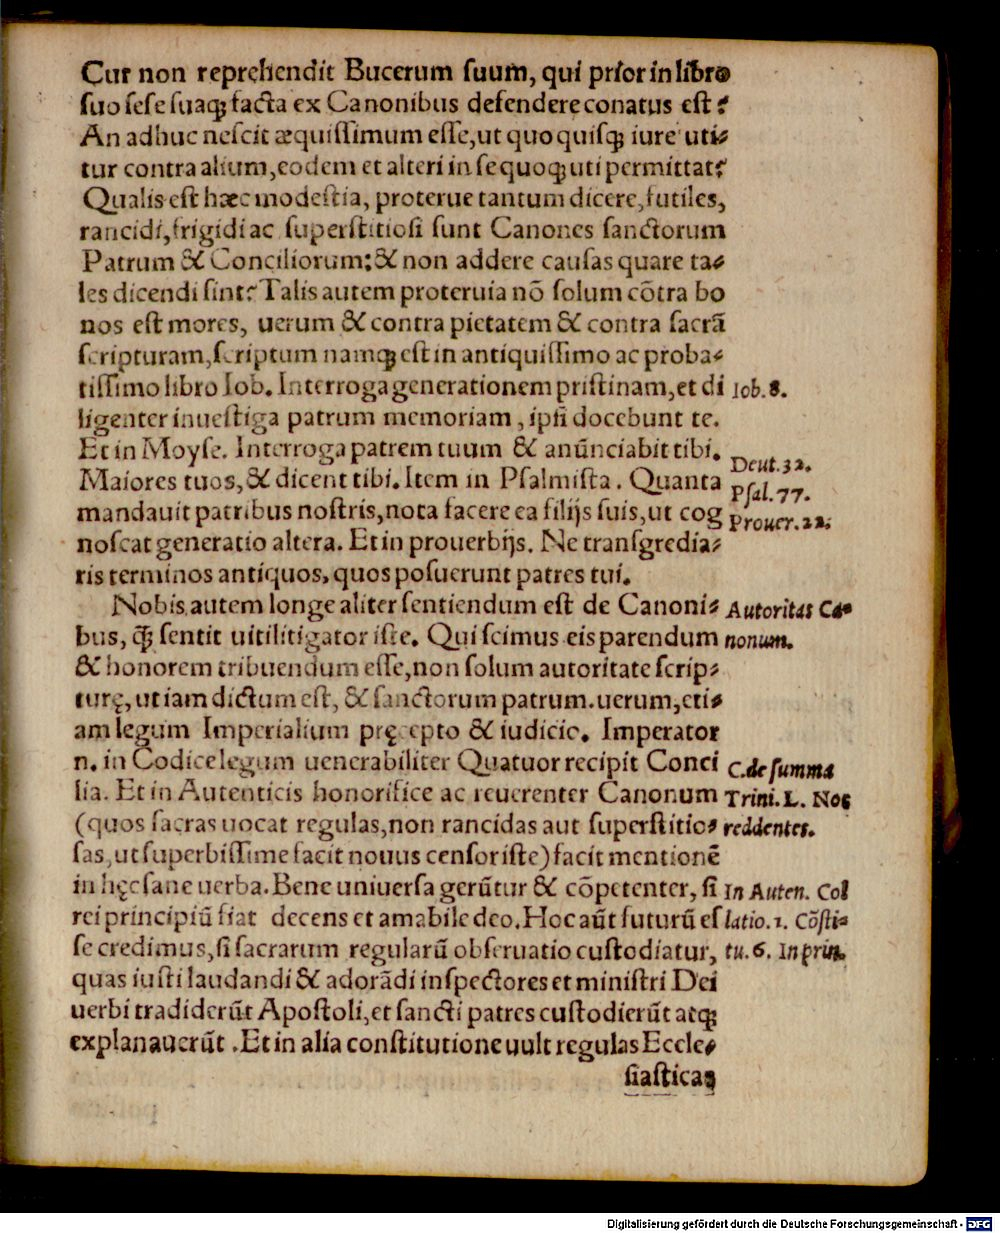 Cur non reprehendit Bucerum suum, qui prior in libro
suo sese suaqꝫ facta ex Canonibus defendere conatus est?
An adhuc nescit æquissimum esse, ut quo quisqꝫ iure uti-
tur contra alium, eodem et alteri in se quoqꝫ uti permittat?
Qualis est hæc modestia, proterue tantum dicere, futiles,
rancidi, frigidi ac superstitiosi sunt Canones sanctorum
Patrum & Conciliorum: & non addere causas quare ta-
les dicendi sint? Talis autem proteruia nō solum cōtra bo
nos est mores, uerum & contra pietatem & contra sacrā
scripturam, scriptum namqꝫ est in antiquissimo ac proba-
tissimo libro Iob. Interroga generationem pristinam, et di
Iob. 8.
ligenter inuestiga patrum memoriam, ipsi docebunt te.
Et in Moyse. Interroga patrem tuum & anūnciabit tibi.
Deut. 32.
Maiores tuos, & dicent tibi. Item in Psalmista. Quanta
Psal. 77.
mandauit patribus nostris, nota facere ea filijs suis, ut cog
Prouer. 22.
noscat generatio altera. Et in prouerbijs. Ne transgredia-
ris terminos antiquos, quos posuerunt patres tui.
Nobis autem longe aliter sentiendum est de Canoni-
Autoritas Ca-
bus, qꝫ̄ sentit uitilitigator iste. Qui scimus eis parendum
nonum.
& honorem tribuendum esse, non solum autoritate scrip-
turę, ut iam dictum est, & sanctorum patrum. uerum, eti-
am legum Imperialium pręcepto & iudicio. Imperator
n. in Codice legum uenerabiliter Quatuor recipit Conci
C. de summa
lia. Et in Autenticis honorifice ac reuerenter Canonum
Trini. L. Nos
(quos sacras uocat regulas, non rancidas aut superstitio-
reddentes.
sas, ut superbissime facit nouus censor iste) facit mentionē
in hęc sane uerba. Bene uniuersa gerūtur & cōpetenter, si
In Auten. Col
rei principiū fiat decens et amabile deo. Hoc aūt futurū es
latio. 1. Cōsti-
se credimus, si sacrarum regularū obseruatio custodiatur,
tu. 6. In prin.
quas iusti laudandi & adorādi inspectores et ministri Dei
uerbi tradiderūt Apostoli, et sancti patres custodierūt atqꝫ
explanauerūt. Et in alia constitutione uult regulas Eccle-
siasticas
Digitalisierung gefördert durch die Deutsche Forschungsgemeinschaft - DFG